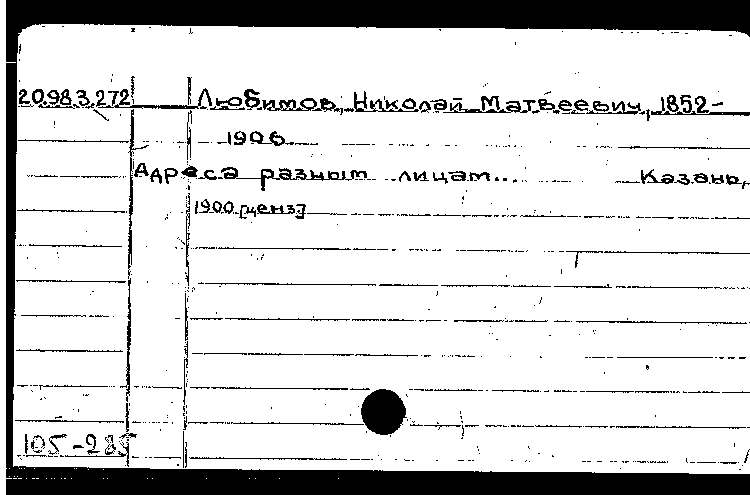 20.983.272 Любимов, Николай Матвеевич, 1852-
1906
Адреса разным лицам... Казань,
1900 [ценз]
105-285